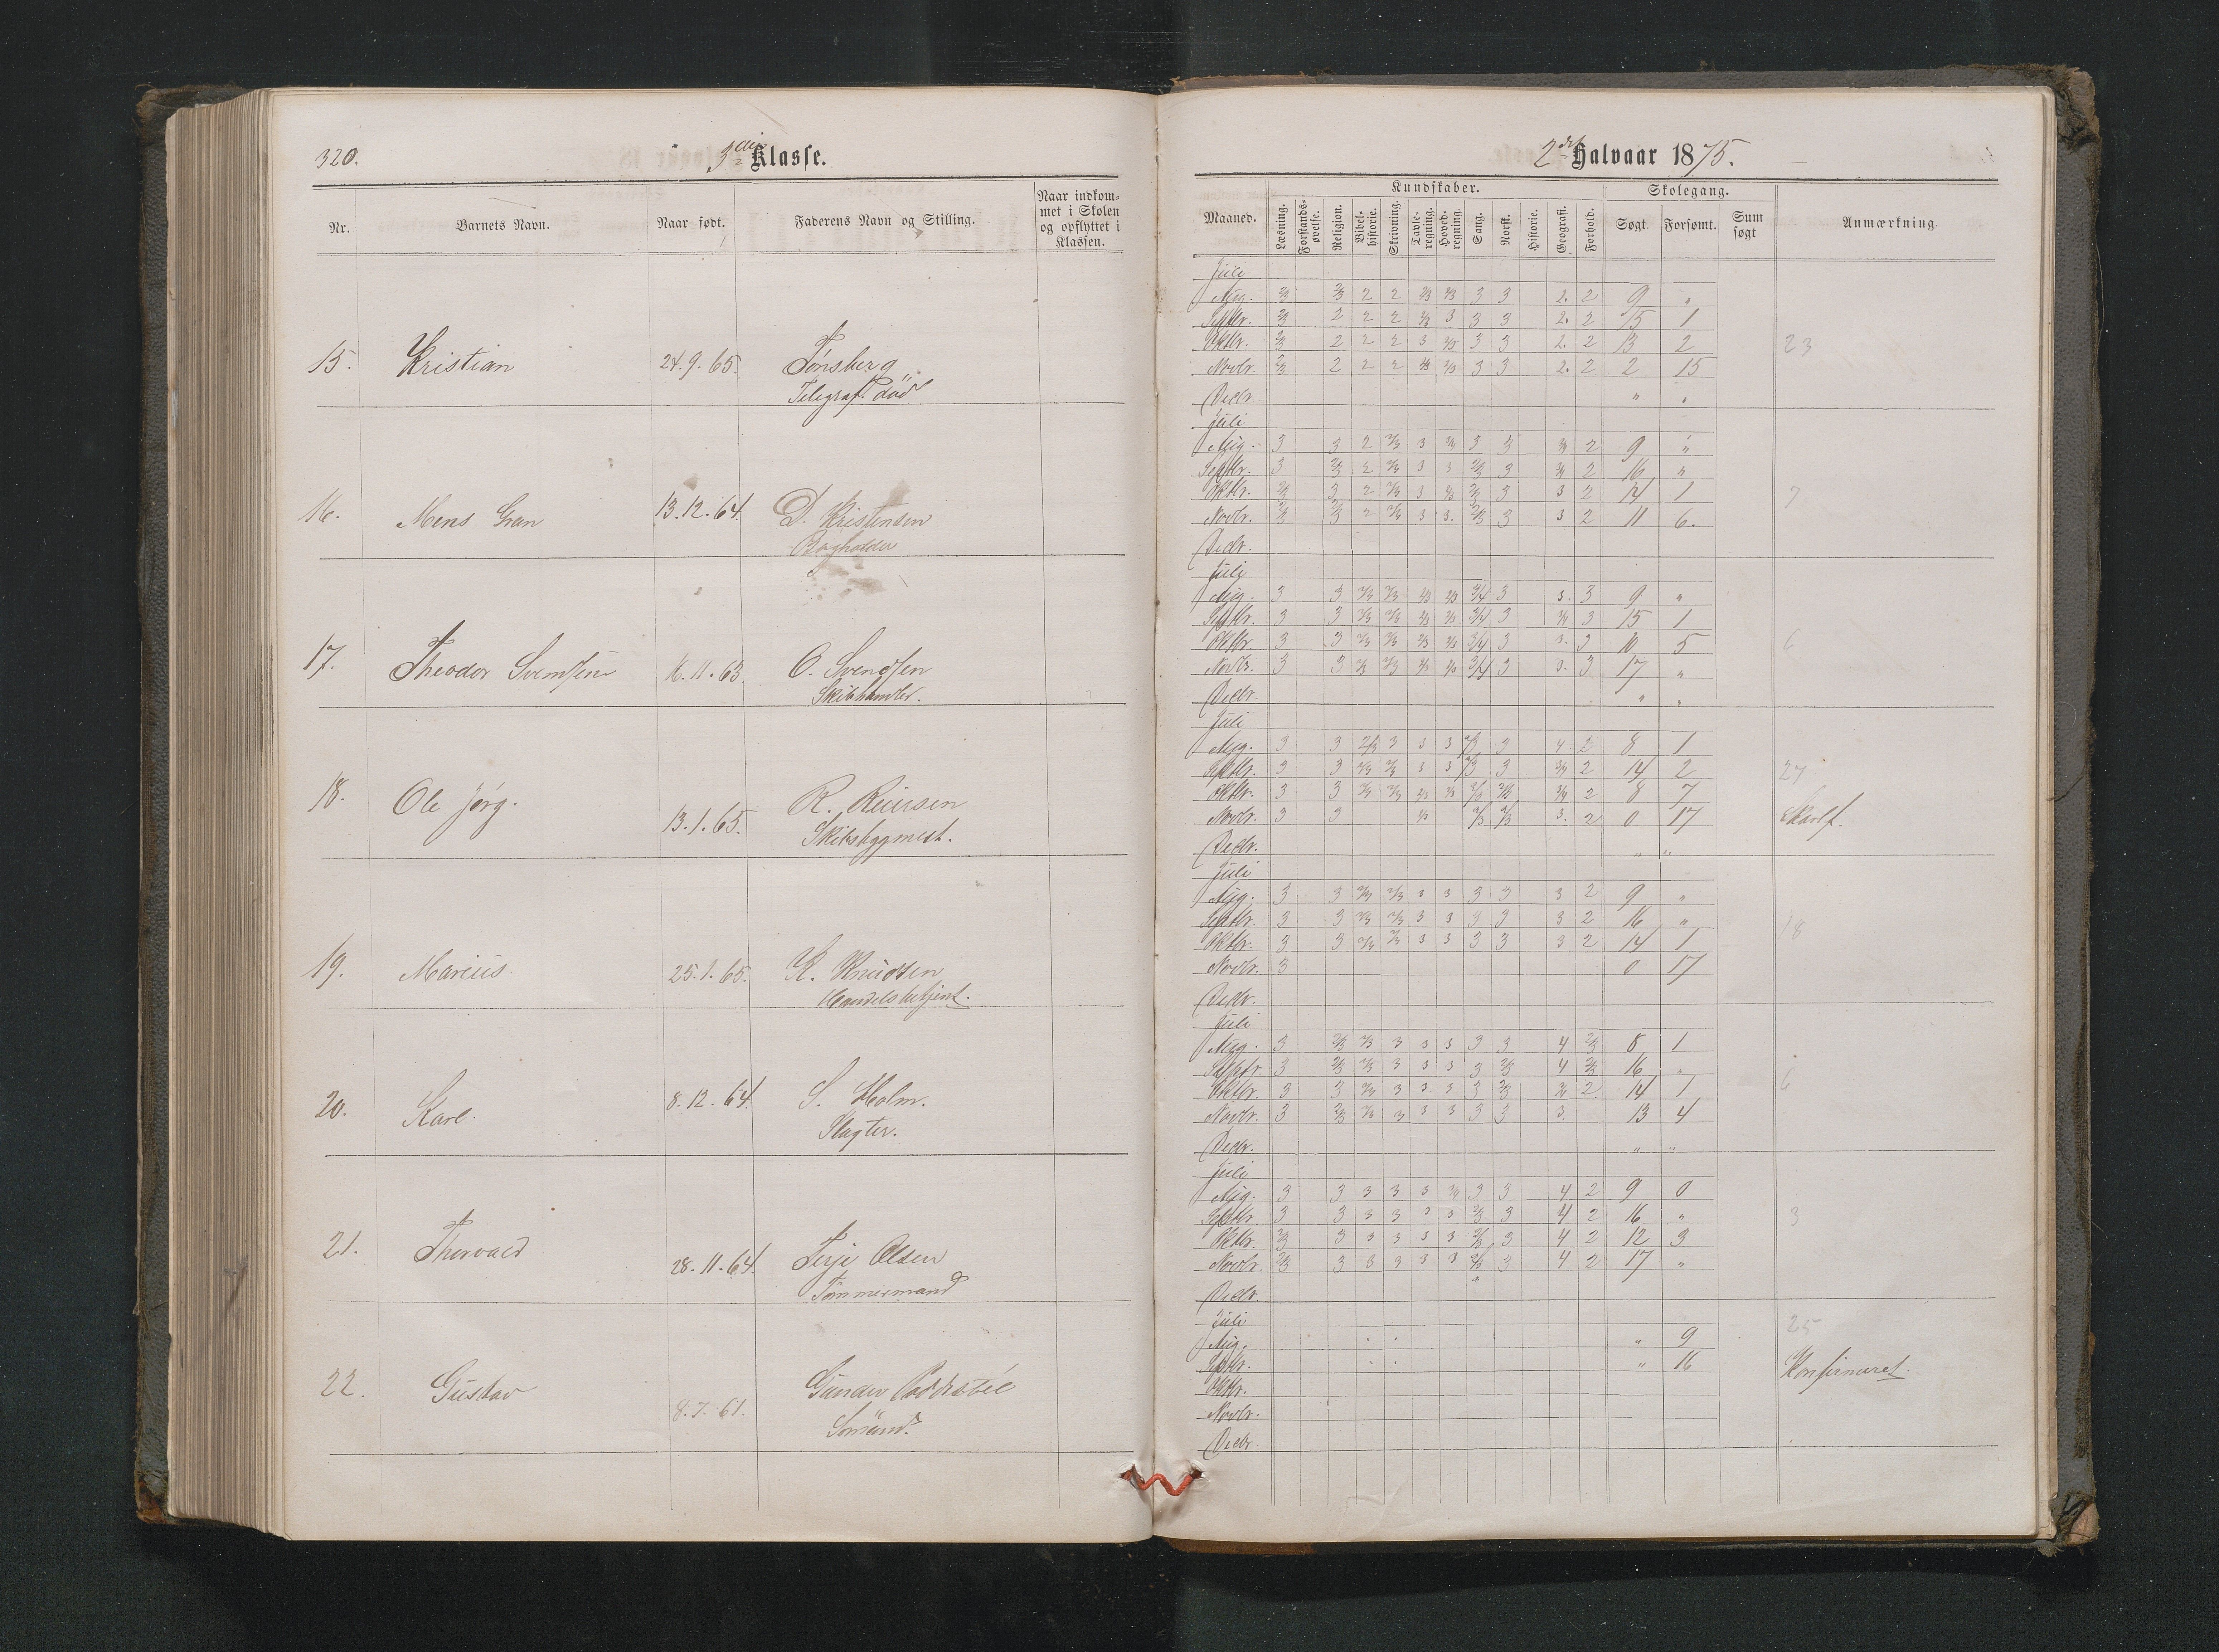 320.
3die Klasse.
Nr.
Barnets Navn.
Naar født.
Faderens Navn og Stilling.
Naar indkom-
met i Skolen
og opflyttet i
Klassen.
15. Kristian 24.9.65. Tønsberg
Telegraf. død
16. Mens Gran 13.12.64. D. Kristensen
Bogholder
17. Theodor Svendsen 16.11.63 O. Svendsen
Skibshandler.
18. Ole Jørg. 13.1.65. R. Reiersen
Skibsbygmest.
19. Marius 25.1.65. K. Knudsen
Handelsbetjent.
20. Karl. 8.12.64. S. Holm.
Slagter.
21. Thorvald 28.11.64. Terje Olsen
Tømmermand
22. Gustav 8.7.61. Gunder
Sømand.
2det Halvaar 1875.
Maaned.
Kundskaber.
Læsning.
Forstands-
øvelse.
Religion.
Bibel-
historie.
Skrivning.
Tavle-
regning.
Hoved-
regning.
Sang.
Norsk.
Historie.
Geografi.
Forhold.
Skolegang.
Søgt.
Forsømt.
Sum
søgt
Anmærkning.
Juli
Aug. 2/3 2/3 2 2 2/3 2/3 3 3 2. 2 9 "
Septbr. 2/3 2 2 2 2/3 3 3 3 2. 2 15 1
Oktbr. 2/3 2 2 2 3 2/3 3 3 2. 2 13 2 23
Novbr. 2/3 2 2 2 2/3 2/3 3 3 2. 2 2 15
Decbr. " "
Juli
Aug. 3 3 2 2/3 3 3/4 3 3 3/4 2 9 "
Septbr. 3 2/3 2 2/3 3 3 2/3 3 3/4 2 16 "
Oktbr. 2/3 3 2 2/3 3 2/3 2/3 3 3 2 14 1 7
Novbr. 2/3 2/3 2 2/3 3 3. 2/3 3 3 2 11 6.
Decbr.
Juli
Aug. 3 3 2/3 2/3 2/3 2/3 3/4 3 3. 3 9 "
Septbr. 3 3 2/3 2/3 2/3 2/3 3/4 3 3/4 3 15 1
Oktbr. 3 3 2/3 2/3 2/3 2/3 3/4 3 3. 3 10 5 6
Novbr. 3 3 2/3 2/3 2/3 2/3 3/4 3 3. 3 17 "
Decbr. " "
Juli
Aug. 3 3 2/3 3 3 3 2/3 3 4 2 8 1
Septbr. 3 3 2/3 2/3 3 3 2/3 3 3/4 2 14 2 27
Oktbr. 3 3 2/3 2/3 2/3 2/3 2/3 2/3 3/4 2 8 7
Novbr. 3 3 2/3 2/3 2/3 3. 2 0 17
Decbr. " "
Juli
Aug. 3 3 2/3 2/3 3 3 3 3 3 2 9 "
Septbr. 3 3 2/3 2/3 3 3 3 3 3 2 16 " 18
Oktbr. 3 3 2/3 2/3 3 3 3 3 3 2 14 1
Novbr. 3 0 17
Decbr.
Juli
Aug. 3 2/3 2/3 3 3 3 3 3 4 2/3 8 1
Septbr. 3 2/3 2/3 3 3 3 3 2/3 4 2/3 16 "
Oktbr. 3 3 2/3 3 3 3 3 2/3 3/4 2 14 1 6
Novbr. 3 2/3 2/3 3 3 3 3 3 3. 13 4
Decbr. " "
Juli
Aug. 3 3 3 3 3 3/4 3 3 4 2 9 0
Septbr. 3 3 3 3 3 3 2/3 3 4 2 16 " 3
Oktbr. 2/3 3 3 3 3 3 2/3 3 4 2 12 3
Novbr. 2/3 3 3 3 3 3 2/3 3 4 2 17 "
Decbr.
Juli 25
Aug. " 9
Septbr. " 16 Konfirmeret.
Oktbr.
Novbr.
Decbr.